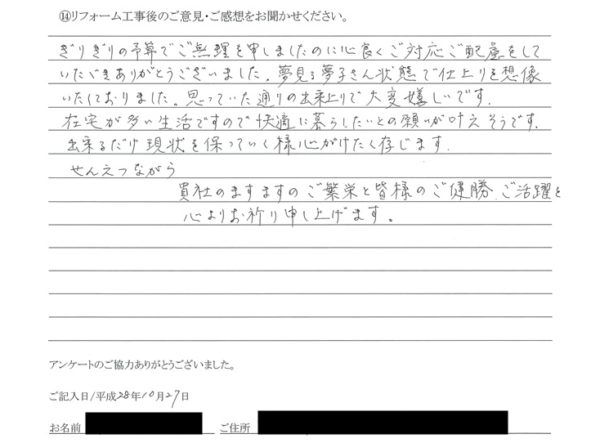 ⑭リフォーム工事後のご意見・ご感想をお聞かせください。
ぎりぎりの予算でご無理を申しましたのに心良くご対応ご配慮をして
いただきありがとうございました。夢見る夢子さん状態で仕上りを想像
いたしておりました。思っていた通りの出来上りで大変嬉しいです.
在宅が多い生活ですので快適に暮らしたいとの願いが叶えそうです.
出来るだけ現状を保っていく様心がけたく存じます.
せんえつながら
貴社のますますのご繁栄と皆様のご健勝、ご活躍を
心よりお祈り申し上げます。
アンケートのご協力ありがとうございました。
ご記入日/平成28年10月27日
お名前 ご住所